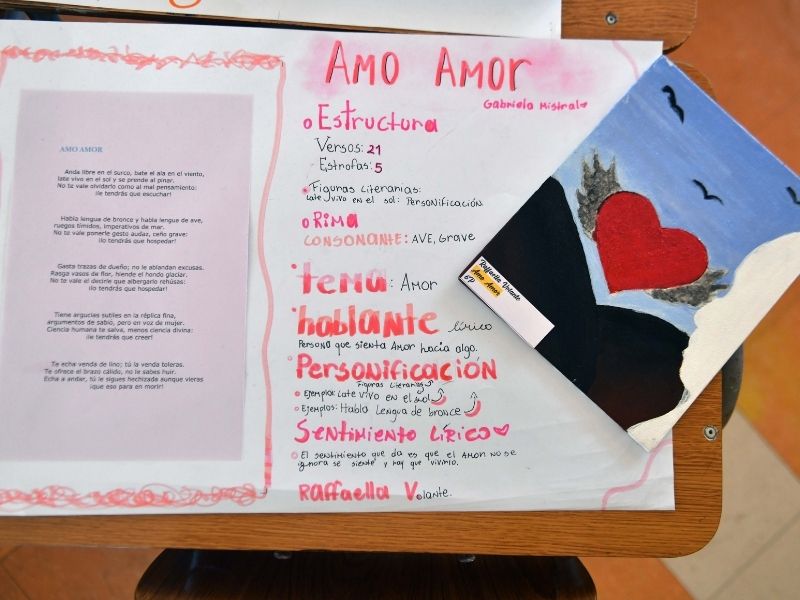 AMO AMOR
Anda libre en el surco, bate el ala en el viento,
late vivo en el sol y se prende al pinar.
No te vale olvidarlo como al mal pensamiento:
¡le tendrás que escuchar!
Habla lengua de bronce y habla lengua de ave,
ruegos tímidos, imperativos de mar.
No te vale ponerle gesto audaz, ceño grave:
¡lo tendrás que hospedar!
Gasta trazas de dueño; no le ablandan excusas.
Rasga vasos de flor, hiende el hondo glaciar.
No te vale el decirle que albergarlo rehúsas:
¡lo tendrás que hospedar!
Tiene argucias sutiles en la réplica fina,
argumentos de sabio, pero en voz de mujer.
Ciencia humana te salva, menos ciencia divina:
¡le tendrás que creer!
Te echa venda de lino; tú la venda toleras.
Te ofrece el brazo cálido, no le sabes huir.
Echa a andar, tú le sigues hechizada aunque vieras
¡que eso para en morir!
AMO AMOR
Gabriela Mistral
Estructura
Versos: 21
Estrofas: 5
Figuras Literarias:
Late vivo en el sol: Personificación
RIMA
CONSONANTE: AVE, Grave
tema: Amor
hablante lírico
Persona que sienta Amor hacia algo.
Personificación
Figuras Literarias
Ejemplo: Late vivo en el sol
Ejemplos: Habla Lengua de bronce
Sentimiento Lírico
El sentimiento que da es que el AMOR no se
ignora se siente y hay que vivirlo.
Raffaella Volante.
Raffaella Volante
Amo Amor